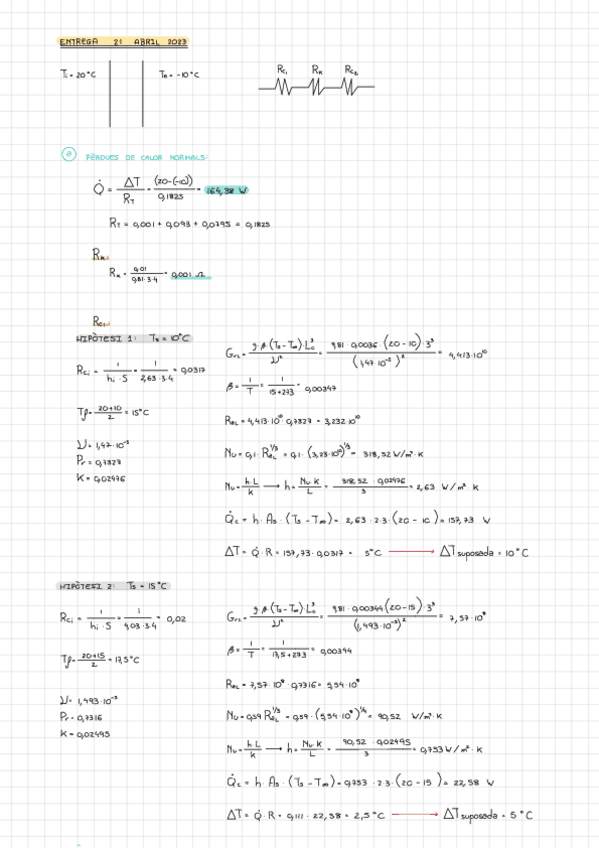 ENTREGA 2: ABRIL 2023
Ti = 20°C
T∞ = -10°C
Rc1 Rk Rc2
a PÈRDUES DE CALOR NORMALS:
Q̇ = ΔT / RT = (20-(-10)) / 0,1825 = 164,38 W
RT = 0,001 + 0,093 + 0,0795 = 0,1825
Rk:
Rk = 0,01 / 0,81·3·4 = 0,001 Ω
Rci:
HIPÒTESI 1: Ts = 10°C
Rci = 1 / hi·S = 1 / 2,63·3·4 = 0,0317
Tf = 20+10 / 2 = 15°C
ν = 1,47·10⁻⁵
Pr = 0,7323
K = 0,02476
GrL = g·β·(Ts-T∞)·Lc³ / ν² = 9,81·0,0036·(20-10)·3³ / (1,47·10⁻⁵)² = 4,413·10¹⁰
β = 1/T = 1 / 15+273 = 0,00347
RaL = 4,413·10¹⁰·0,7323 = 3,232·10¹⁰
Nu = 0,1·RaL^1/3 = 0,1·(3,23·10¹⁰)^1/3 = 318,52 W/m²·K
Nu = h·L / k → h = Nu·K / L = 318,52·0,02476 / 3 = 2,63 W/m²·K
Q̇c = h·As·(Ts-T∞) = 2,63·2·3·(20-10) = 157,73 W
ΔT = Q̇·R = 157,73·0,0317 = 5°C → ΔT suposada = 10°C
HIPÒTESI 2: Ts = 15°C
Rci = 1 / hi·S = 1 / 4,03·3·4 = 0,02
Tf = 20+15 / 2 = 17,5°C
ν = 1,493·10⁻⁵
Pr = 0,7316
K = 0,02495
GrL = g·β·(Ts-T∞)·Lc³ / ν² = 9,81·0,00344·(20-15)·3³ / (1,493·10⁻⁵)² = 7,57·10⁹
β = 1/T = 1 / 17,5+273 = 0,00344
RaL = 7,57·10⁹·0,7316 = 5,54·10⁹
Nu = 0,59 RaL^1/4 = 0,59·(5,54·10⁹)^1/4 = 90,52 W/m²·K
Nu = h·L / k → h = Nu·K / L = 90,52·0,02495 / 3 = 0,753 W/m²·K
Q̇c = h·As·(Ts-T∞) = 0,753·2·3·(20-15) = 22,58 W
ΔT = Q̇·R = 0,111·22,58 = 2,5°C → ΔT suposada = 5°C